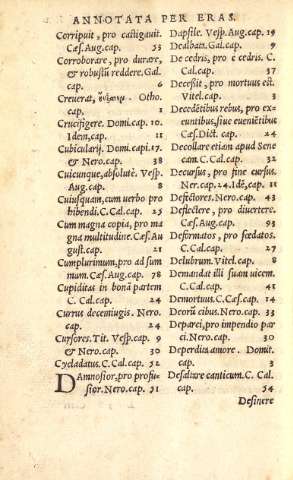 ANNOTATA PER ERAS.
Corripuit, pro castigauit.
Cæs. Aug. cap. 53
Corroborare, pro durare,
& robustũ reddere. Gal.
cap. 6
Creuerat, Otho.
cap. 2
Crucifigere. Domi. cap. 10.
Idem, cap. 11
Cubicularij. Domi. capi. 17.
& Nero. cap. 38
Cuicunque, absolutè. Vesp.
Aug. cap. 8
Cuiusquam, cum uerbo pro
hibendi. C. Cal. cap. 25
Cum magna copia, pro ma
gna multitudine. Cæs. Au
gust. cap. 21
Cumplurimum, pro ad sum
mum. Cæs. Aug. cap. 78
Cupiditas in bonã partem
C. Cal. cap. 24
Currus decemiugis. Nero.
cap. 24
Cursores. Tit. Vesp. cap. 9
& Nero. cap. 30
Cycladatus. C. Cal. cap. 52
DAmnosior, pro profu-
sior. Nero. cap. 31
Dapsile. Vesp. Aug. cap. 19
Dealbati. Gal. cap. 9
De cedris, pro e cedris. C.
Cal. cap. 37
Decessit, pro mortuus est.
Vitel. cap. 3
Decedẽtibus rebus, pro ex-
euntibus, siue eueniẽtibus
Cæs. Dict. cap. 24
Decollare etiam apud Sene
cam. C. Cal. cap. 32
Decursus, pro fine cursus.
Ner. cap. 24. Idẽ, cap. 11
Defectores. Nero. cap. 43
Deflectere, pro diuertere.
Cæs. Aug. cap. 93
Deformatos, pro fœdatos.
C. Cal. cap. 27
Delubrum. Vitel. cap. 8
Demandat illi suam uicem.
C. Cal. cap. 43
Demortuus. C. Cæs. cap. 14
Deorũ cibus. Nero. cap. 33
Deparci, pro impendio par
ci. Nero. cap. 30
Deperdita amore. Domit.
cap. 3
Desaltare canticum. C. Cal.
cap. 54
Desinere